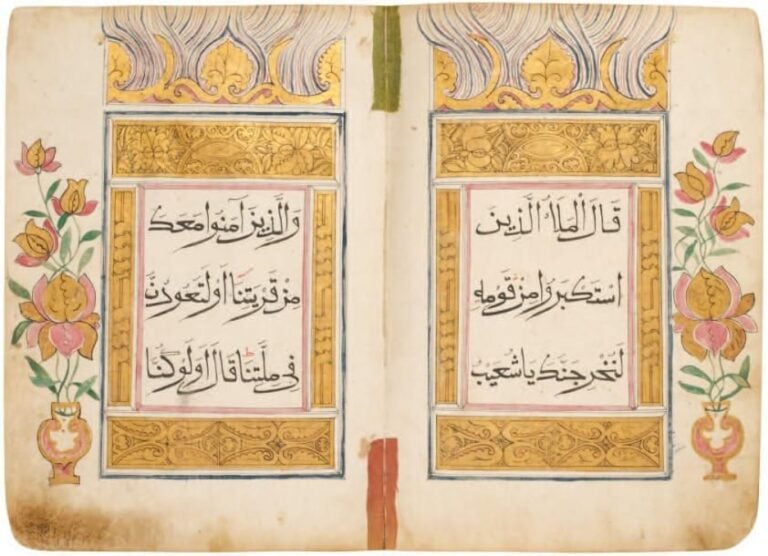 قَالَ الْمَلَأُ الَّذِينَ
اسْتَكْبَرُوا مِنْ قَوْمِهِ
لَنُخْرِجَنَّكَ يَا شُعَيْبُ
وَالَّذِينَ آمَنُوا مَعَكَ
مِنْ قَرْيَتِنَا أَوْ لَتَعُودُنَّ
فِي مِلَّتِنَا قَالَ أَوَلَوْ كُنَّا